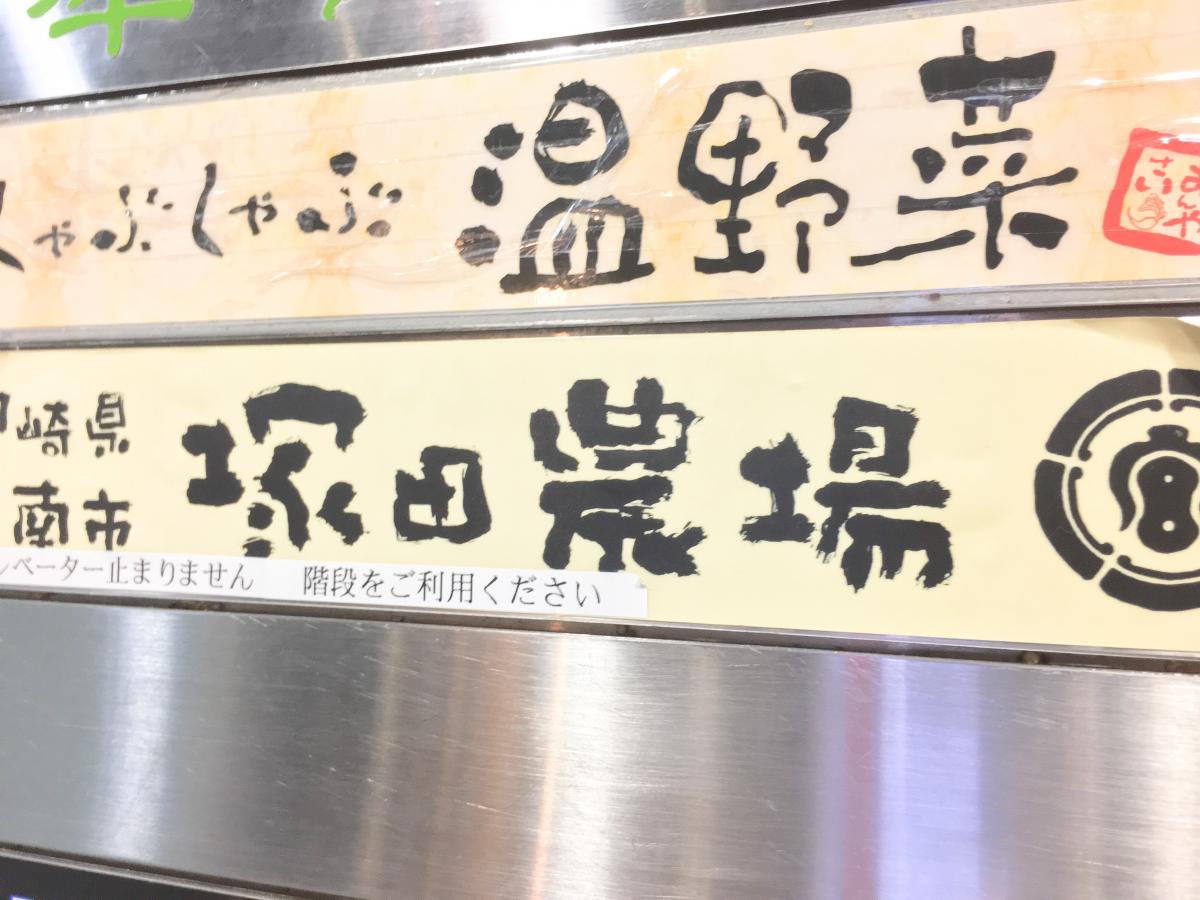 しゃぶしゃぶ 温野菜
おんや
さい
崎県
南市
塚田農場
ベーター止まりません 階段をご利用ください